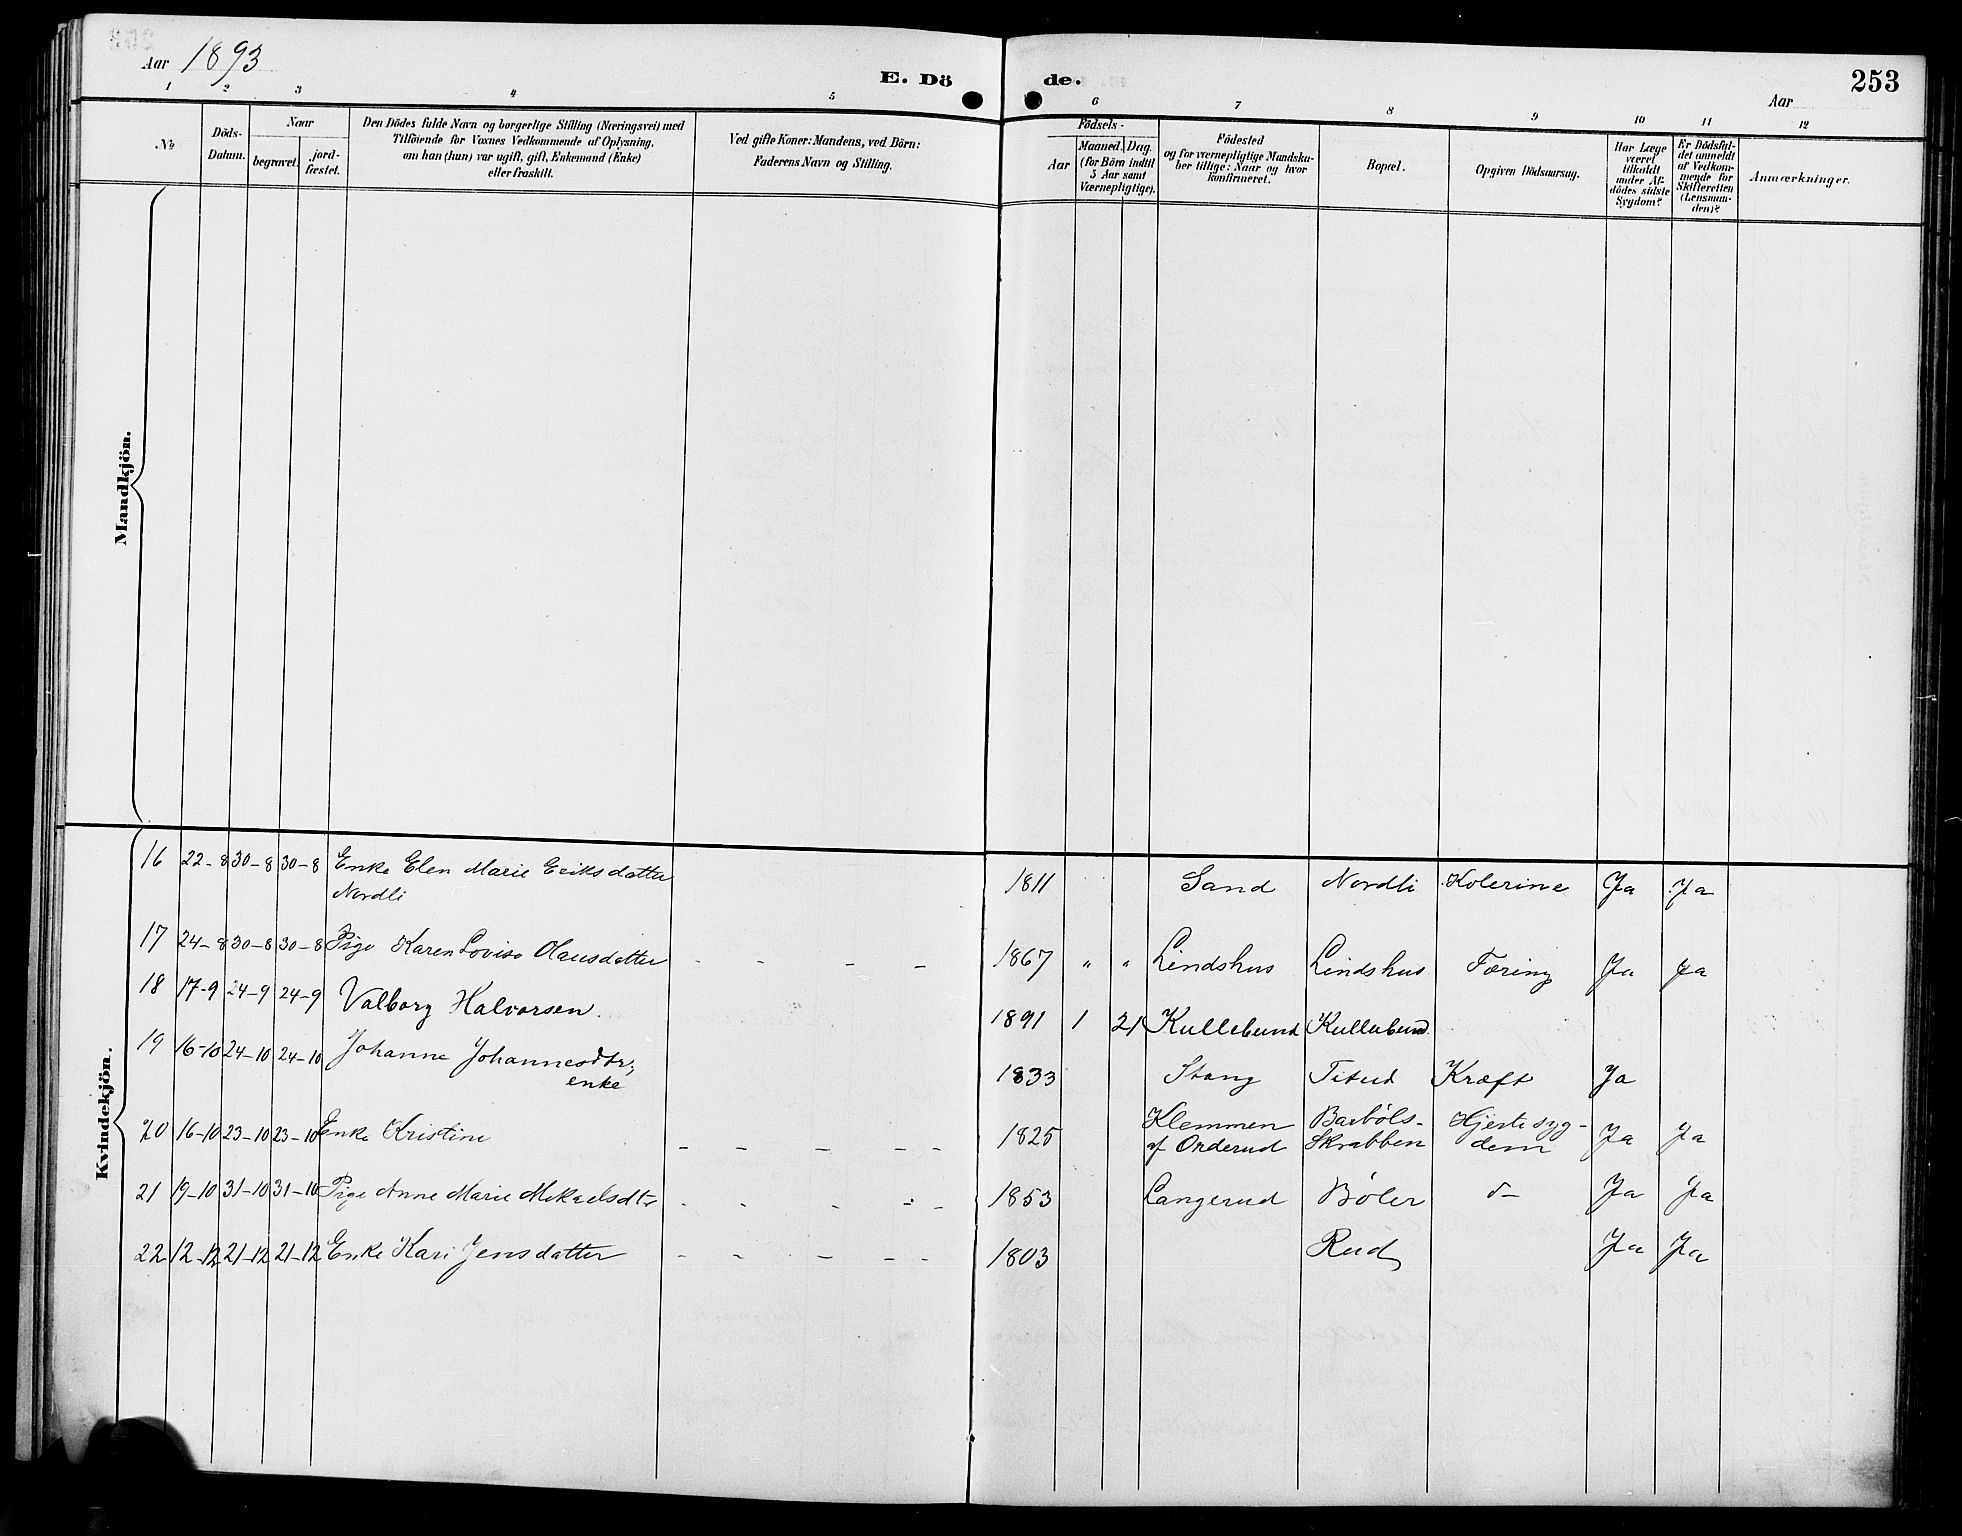 Aar 1893
E. Döde.
Aar
253
1 2 3 4 5 6 7 8 9 10 11 12
No
Döds-Datum.
Naar
begravet.
jord-fæstet.
Den Dödes fulde Navn og borgerlige Stilling (Næringsvei) med
Tilföiende for Voxnes Vedkommende af Oplysning,
om han (hun) var ugift, gift, Enkemand (Enke)
eller fraskilt.
Ved gifte Koner: Mandens, ved Börn:
Faderens Navn og Stilling.
Födsels-
Aar
Maaned. Dag.
(for Börn indtil
5 Aar samt
Værnepligtige).
Födested
og for værnepligtige Mandska-
ber tillige: Naar og hvor
konfirmeret.
Bopæl.
Opgiven Dödsaarsag.
Har Læge
været
tilkaldt
under Af-
dödes sidste
Sygdom?
Er Dödsfal-
det anmeldt
af Vedkom-
mende for
Skifteretten
(Lensman-
den)?
Anmærkninger.
Mandkjön.
Kvindekjön.
16 22-8 30-8 30-8 Enke Elen Marie Eriksdatter
Nordli
1811 Sand Nordli Kolerine Ja Ja
17 24-8 30-8 30-8 Pige Karen Lovise Olausdatter - - - -
1867 " " Lindshus Lindshus Tæring Ja Ja
18 17-9 24-9 24-9 Valborg Halvorsen.
1891 1 21 Kullebund Kullebund
19 16-10 24-10 24-10 Johanne Johannesdtr,
enke
1833 Stang Titud Kræft Ja
20 16-10 23-10 23-10 Enke Kristine - - - - -
1825 Klemmen
af Orderud
Barbøls-
Skrabben
Hjertesyg-
dom
Ja Ja
21 19-10 31-10 31-10 Pige Anne Marie Mikaelsdtr - - - - -
1853 Langerud Bøler d- Ja Ja
22 12-12 21-12 21-12 Enke Kari Jensdatter - - - - -
1803 Rud Ja Ja